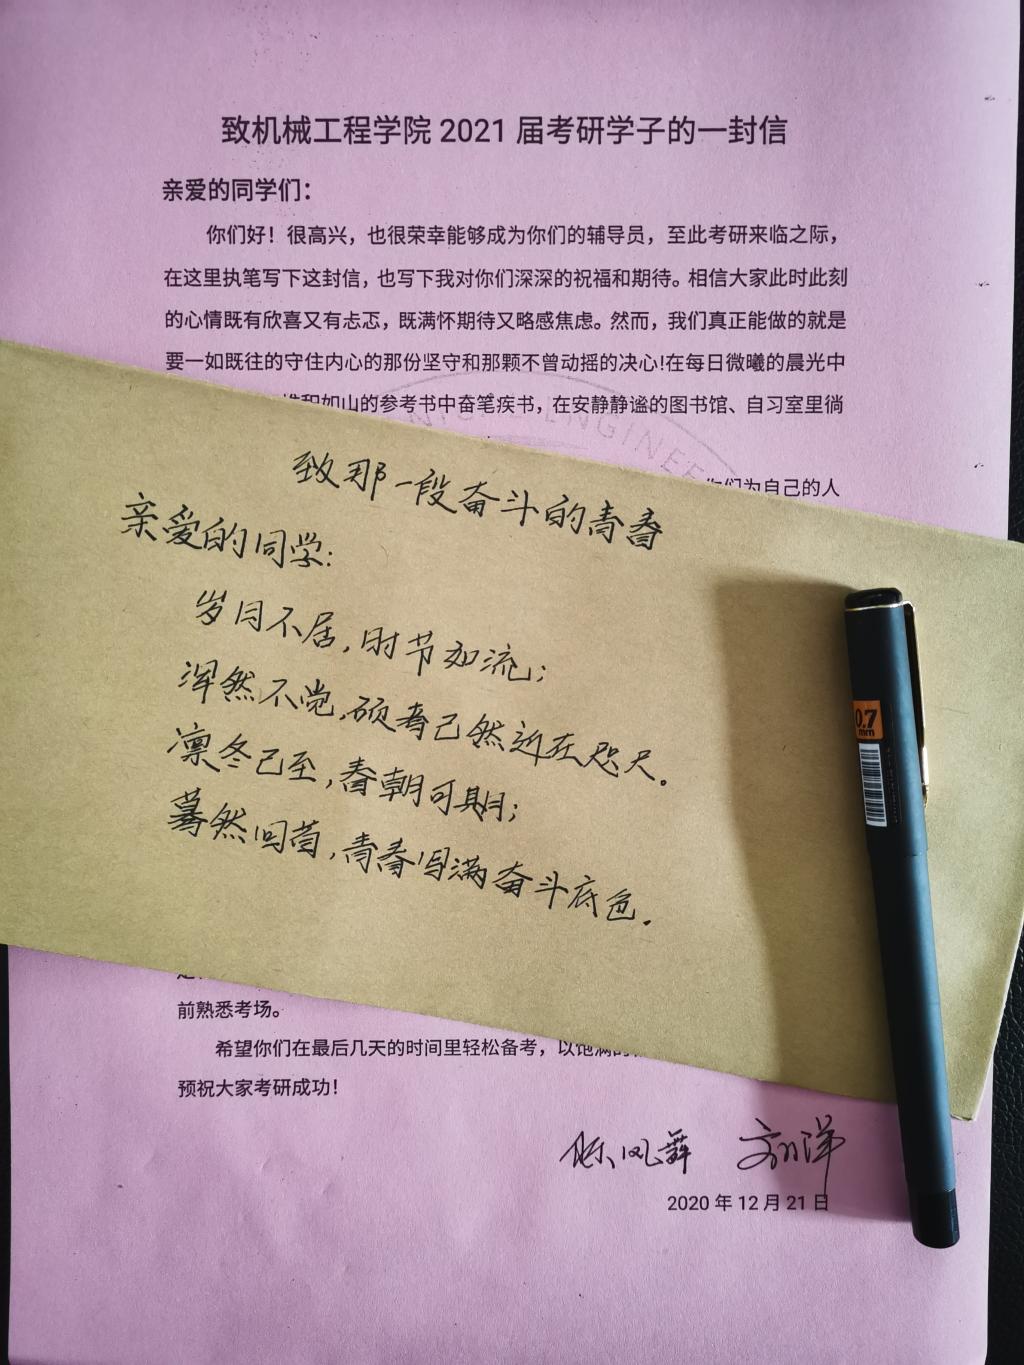 致机械工程学院 2021 届考研学子的一封信
亲爱的同学们：
你们好！很高兴，也很荣幸能够成为你们的辅导员，至此考研来临之际，
在这里执笔写下这封信，也写下我对你们深深的祝福和期待。相信大家此时此刻
的心情既有欣喜又有忐忑，既满怀期待又略感焦虑。然而，我们真正能做的就是
要一如既往的守住内心的那份坚守和那颗不曾动摇的决心!在每日微曦的晨光中
堆积如山的参考书中奋笔疾书，在安静静谧的图书馆、自习室里徜
ENGINEE
你们为自己的人
致那一段奋斗的青春
亲爱的同学:
岁月不居,时节如流;
浑然不觉,硕考已然近在咫尺。
凛冬已至,春朝可期;
蓦然回首,青春写满奋斗底色.
0.7
mm
前熟悉考场。
希望你们在最后几天的时间里轻松备考，以饱满的
预祝大家考研成功！
陈凤舞 刘洋
2020 年 12 月 21 日